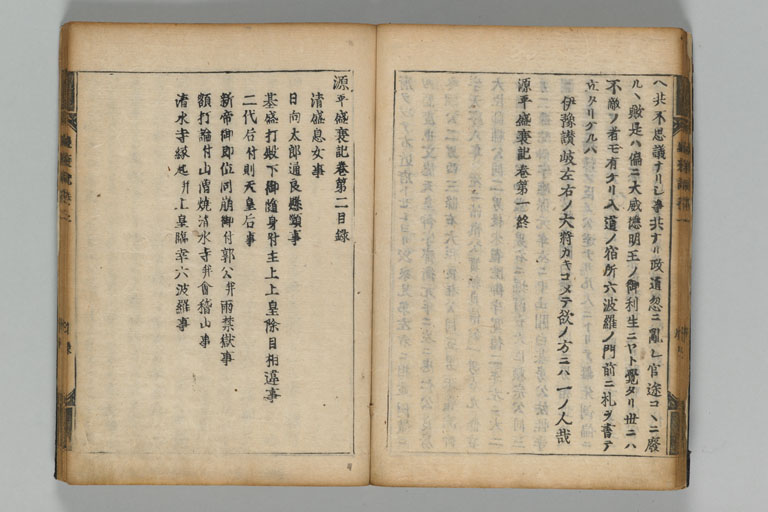 ヘ共不思議ナリシ事共ナリ政道忽ニ亂レ官途コヽニ廢
ルヽ歟是ハ偏ニ大威德明王ノ御利生ニヤト覺タリ世ニハ
不敵ノ者モ有ケリ入道ノ宿所六波羅ノ門前ニ札ヲ書テ
立タリケルハ
伊豫讃岐左右ノ大將カキコメテ欲ノ方ニハ一ノ人哉
源平盛衰記卷第一終
源平盛衰記卷第二目録
清盛息女事
日向太郎通良懸頸事
基盛打殿下御隨身附主上上皇除目相違事
二代后付則天皇后事
新帝御即位同崩御付郭公幷雨禁獄事
額打論付山僧燒清水寺幷會稽山事
清水寺縁起幷上皇臨幸六波羅事